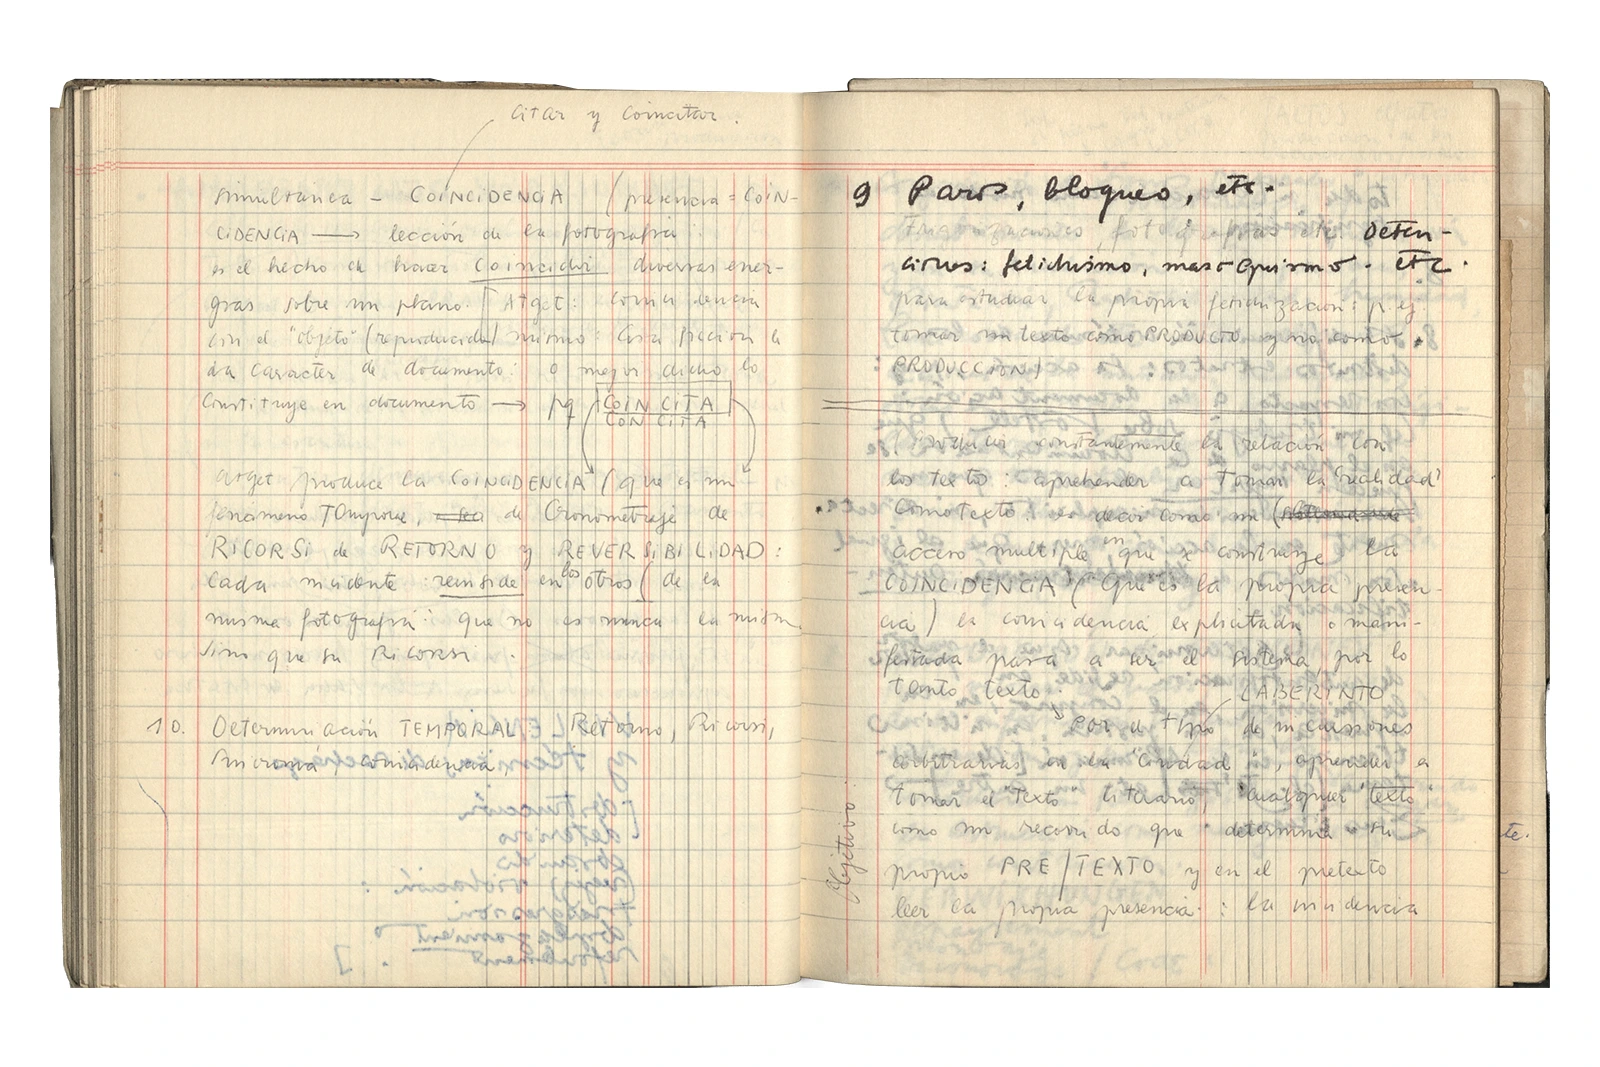 Citar y Coincitar.
simultanea – COINCIDENCIA (presencia = COIN-
CIDENCIA → lección de la fotografía:
es el hecho de hacer coincidir diversas ener-
gías sobre un plano. Atget: coincidencia
con el "objeto" (reproducido) mismo: Esa ficción le
da carácter de documento: o mejor dicho lo
constituye en documento → pq COIN CITA
CON CITA
Atget produce la COINCIDENCIA (que es un
fenómeno de Cronometraje de
RICORSI de RETORNO y REVERSIBILIDAD:
cada incidente reincide en los otros (de la
misma fotografía: que no es nunca la misma
sino que su RICORSI.
10. Determinación TEMPORAL, Retorno, Ricorsi,
sincronía, coincidencia,
9 Paros, bloqueo, etc.
fotografía etc Deten-
ciones: fetichismo, masoquismo. etc.
para estudiar la propia fetichización: p.ej.
tomar un texto como PRODUCTO y no como
PRODUCCION)
constantemente la relación con
los texto: aprehender a tomar la "realidad"
como texto: es decir como un
acceso multiple en que se construye la
COINCIDENCIA (que es la propia presen-
cia) la coincidencia explicitada o mani-
festada pasa a ser el sistema, por lo
tanto texto.
LABERINTO
Por el tipo de incursiones
arbitrarias en la "Ciudad", aprender a
tomar el "Texto" literario, "cualquier "texto"
como un recorrido que determina su
propio PRE/TEXTO y en el pretexto
leer la propia presencia: la incidencia
Objetivo.
te.